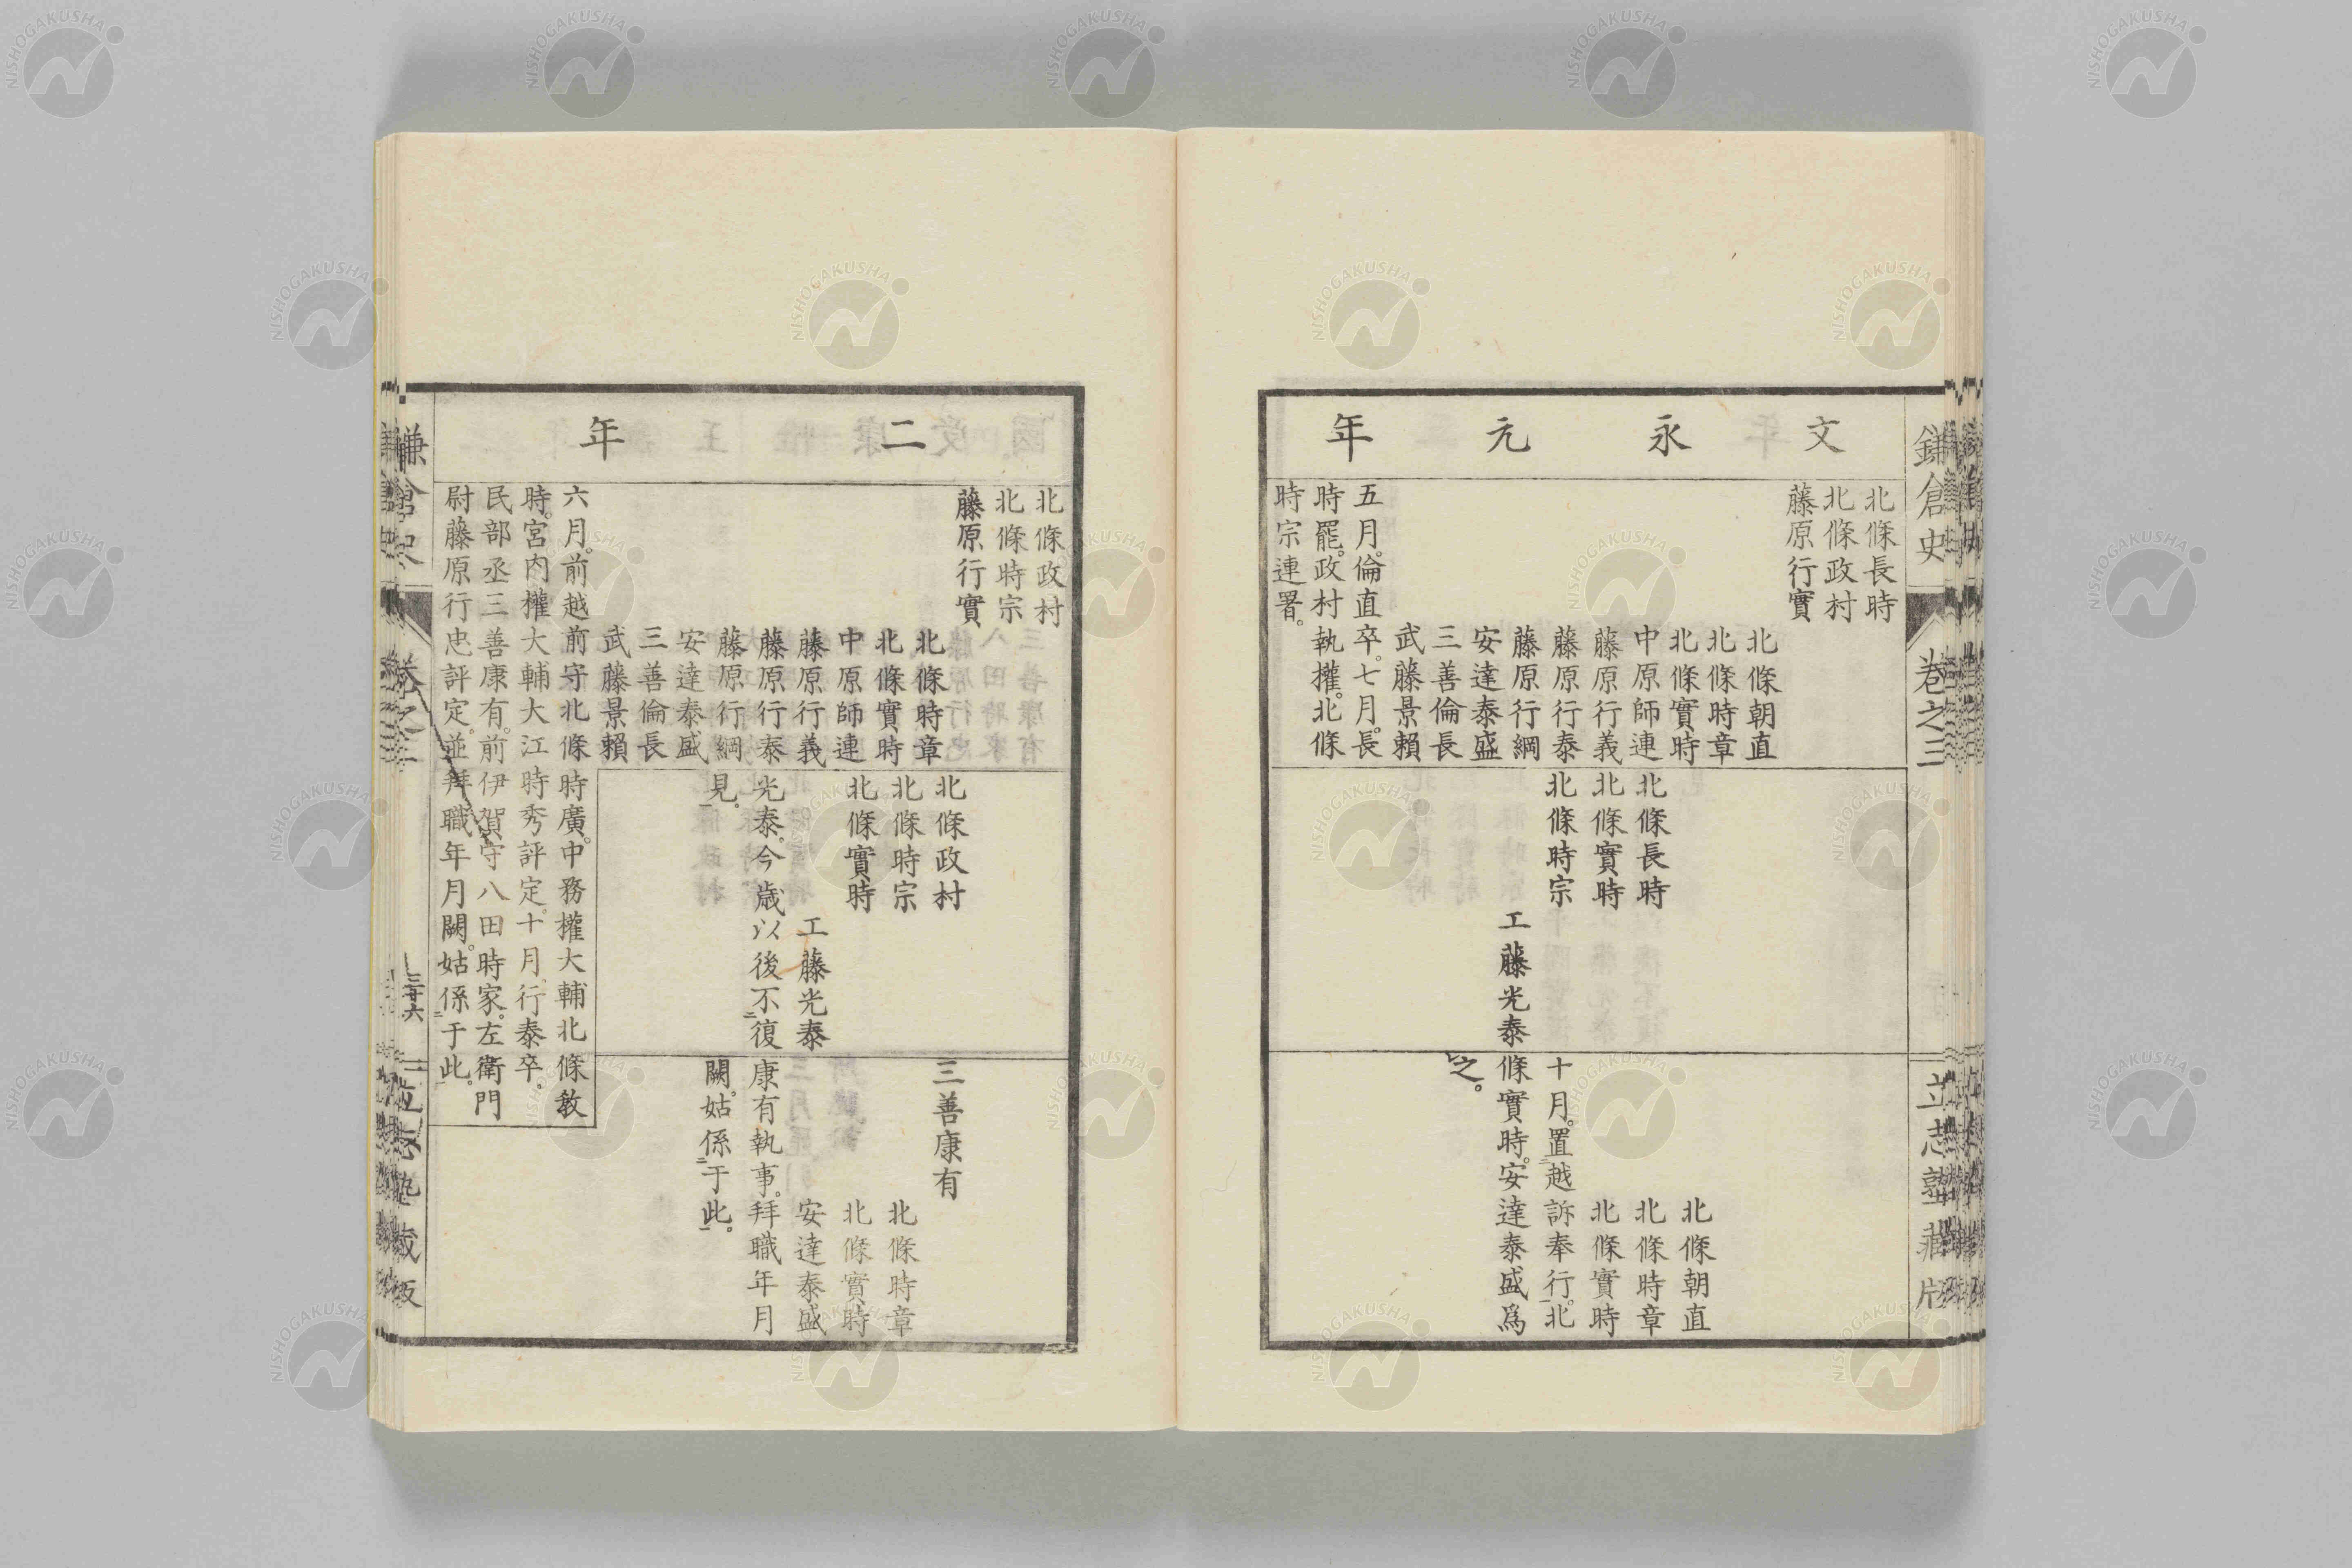 鎌倉史 卷之三 立志塾藏版
文永元年
北條長時
北條政村
藤原行實
北條朝直
北條時章
北條實時
中原師連
藤原行義
藤原行泰
藤原行綱
安達泰盛
三善倫長
武藤景頼
五月。倫直卒。七月。長
時罷。政村執權。北條
時宗連署。
北條長時
北條實時
北條時宗
工藤光泰
北條朝直
北條時章
北條實時
十月。置二越訴奉行一。北
條實時。安達泰盛爲
之。
二年
北條政村
北條時宗
藤原行實
北條時章
北條實時
中原師連
藤原行義
藤原行泰
藤原行綱
安達泰盛
三善倫長
武藤景頼
北條政村
北條時宗
北條實時
工藤光泰
光泰。今歳以後不二復
見一。
三善康有
北條時章
北條實時
安達泰盛
康有執事。拜職年月
闕。姑係二于此一。
六月。前越前守北條時廣。中務權大輔北條敎
時。宮内權大輔大江時秀評定。十月。行泰卒。
民部丞三善康有。前伊賀守八田時家。左衛門
尉藤原行忠評定。並拜職年月闕。姑係二于此一。
三十六
NISHOGAKUSHA